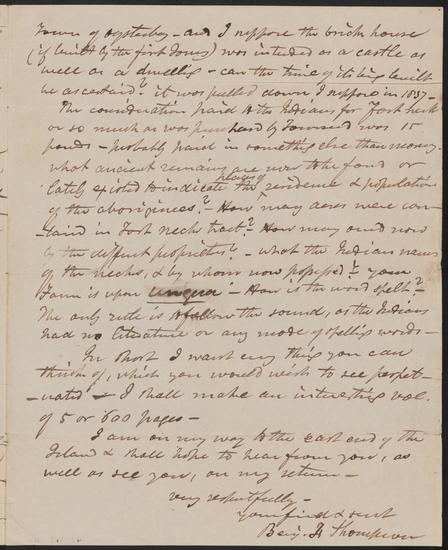 Town of Oysterbay - and I suppose the brick house
(if built by the first Jones) was intended as a castle as
well as a dwelling - can the time of its being built
be ascertaind? it was pulled down I suppose in 1837 -
The consideration paid to the Indians for Fort neck
or so much as was purchased by Townsend was 15
pounds - probably paid in something else than money.
What ancient remains are now to be found or
lately existed to indicate the place of residence & population
of the aborigines? - How many acres were con-
-taind in Fort neck tract? How many and now
by the different proprietors? - what the Indian names
of the necks, & by whom now possessed? your
Farm is upon Unqua - How is the word spelt?
The only rule is to follow the sound, as the Indians
had no literature or any mode of spelling words -
In short I want any thing you can
think of, which you would wish to see perpet-
-uated - I shall make an interesting vol.
of 5 or 600 pages -
I am on my way to the east end of the
Island & shall hope to hear from you, as
well as see you, on my return -
very respectfully -
your friend & servt
Benj. F Thompson